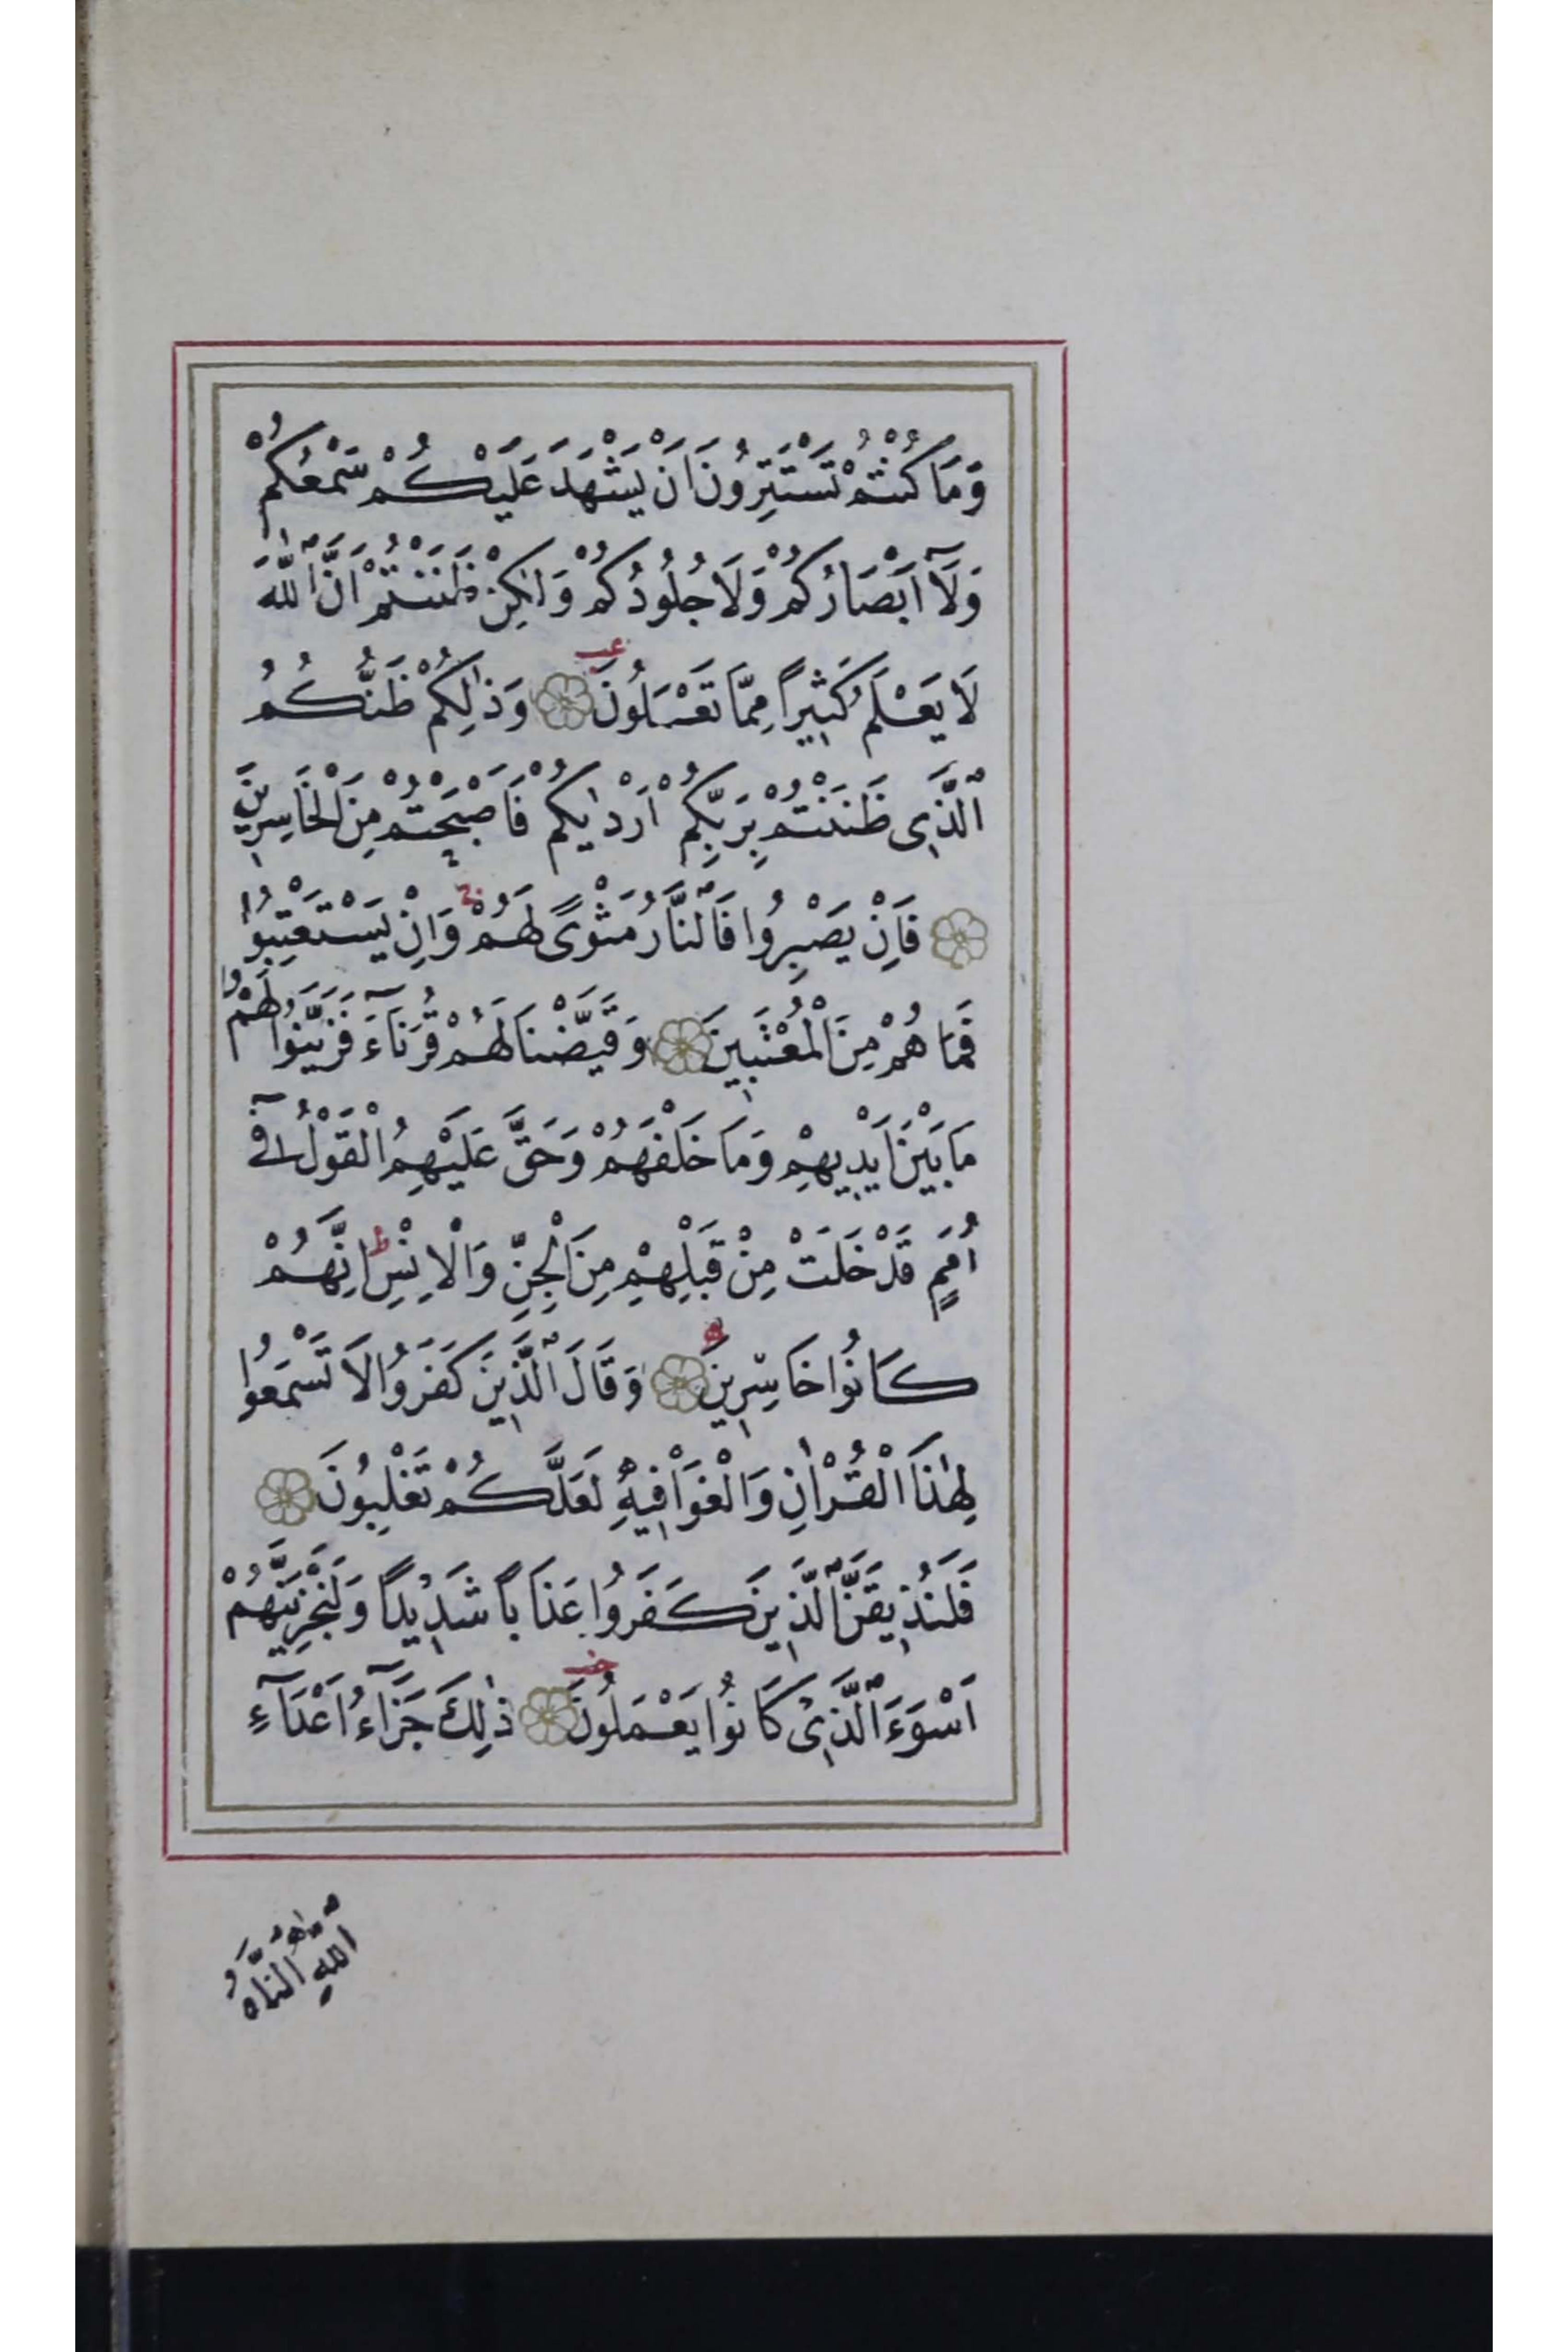 وَمَا كُنْتُمْ تَسْتَتِرُونَ اَنْ يَشْهَدَ عَلَيْكُمْ سَمْعُكُمْ
وَلَٓا اَبْصَارُكُمْ وَلَا جُلُودُكُمْ وَلٰكِنْ ظَنَنْتُمْ اَنَّ ٱللّٰهَ
لَا يَعْلَمُ كَثِيرًا مِمَّا تَعْمَلُونَ عب وَذٰلِكُمْ ظَنُّكُمُ
ٱلَّذِى ظَنَنْتُمْ بِرَبِّكُمْ اَرْدٰيكُمْ فَاَصْبَحْتُمْ مِنَ الْخَاسِرِينَ
فَاِنْ يَصْبِرُوا فَٱلنَّارُ مَثْوًى لَهُمْ ج وَاِنْ يَسْتَعْتِبُوا
فَمَا هُمْ مِنَ الْمُعْتَبِينَ وَقَيَّضْنَا لَهُمْ قُرَنَٓاءَ فَزَيَّنُوا لَهُمْ
مَا بَيْنَ اَيْدِيهِمْ وَمَا خَلْفَهُمْ وَحَقَّ عَلَيْهِمُ الْقَوْلُ فِٓى
اُمَمٍ قَدْ خَلَتْ مِنْ قَبْلِهِمْ مِنَ الْجِنِّ وَالْاِنْسِ ط اِنَّهُمْ
كَانُوا خَاسِرِينَ ه وَقَالَ ٱلَّذِينَ كَفَرُوا لَا تَسْمَعُوا
لِهٰذَا الْقُرْاٰنِ وَالْغَوْا فِيهِ لَعَلَّكُمْ تَغْلِبُونَ
فَلَنُذِيقَنَّ ٱلَّذِينَ كَفَرُوا عَذَابًا شَدِيدًا وَلَنَجْزِيَنَّهُمْ
اَسْوَءَ ٱلَّذِى كَانُوا يَعْمَلُونَ خب ذٰلِكَ جَزَٓاءُ اَعْدَٓاءِ
ٱللّٰهِ ٱلنَّارُ